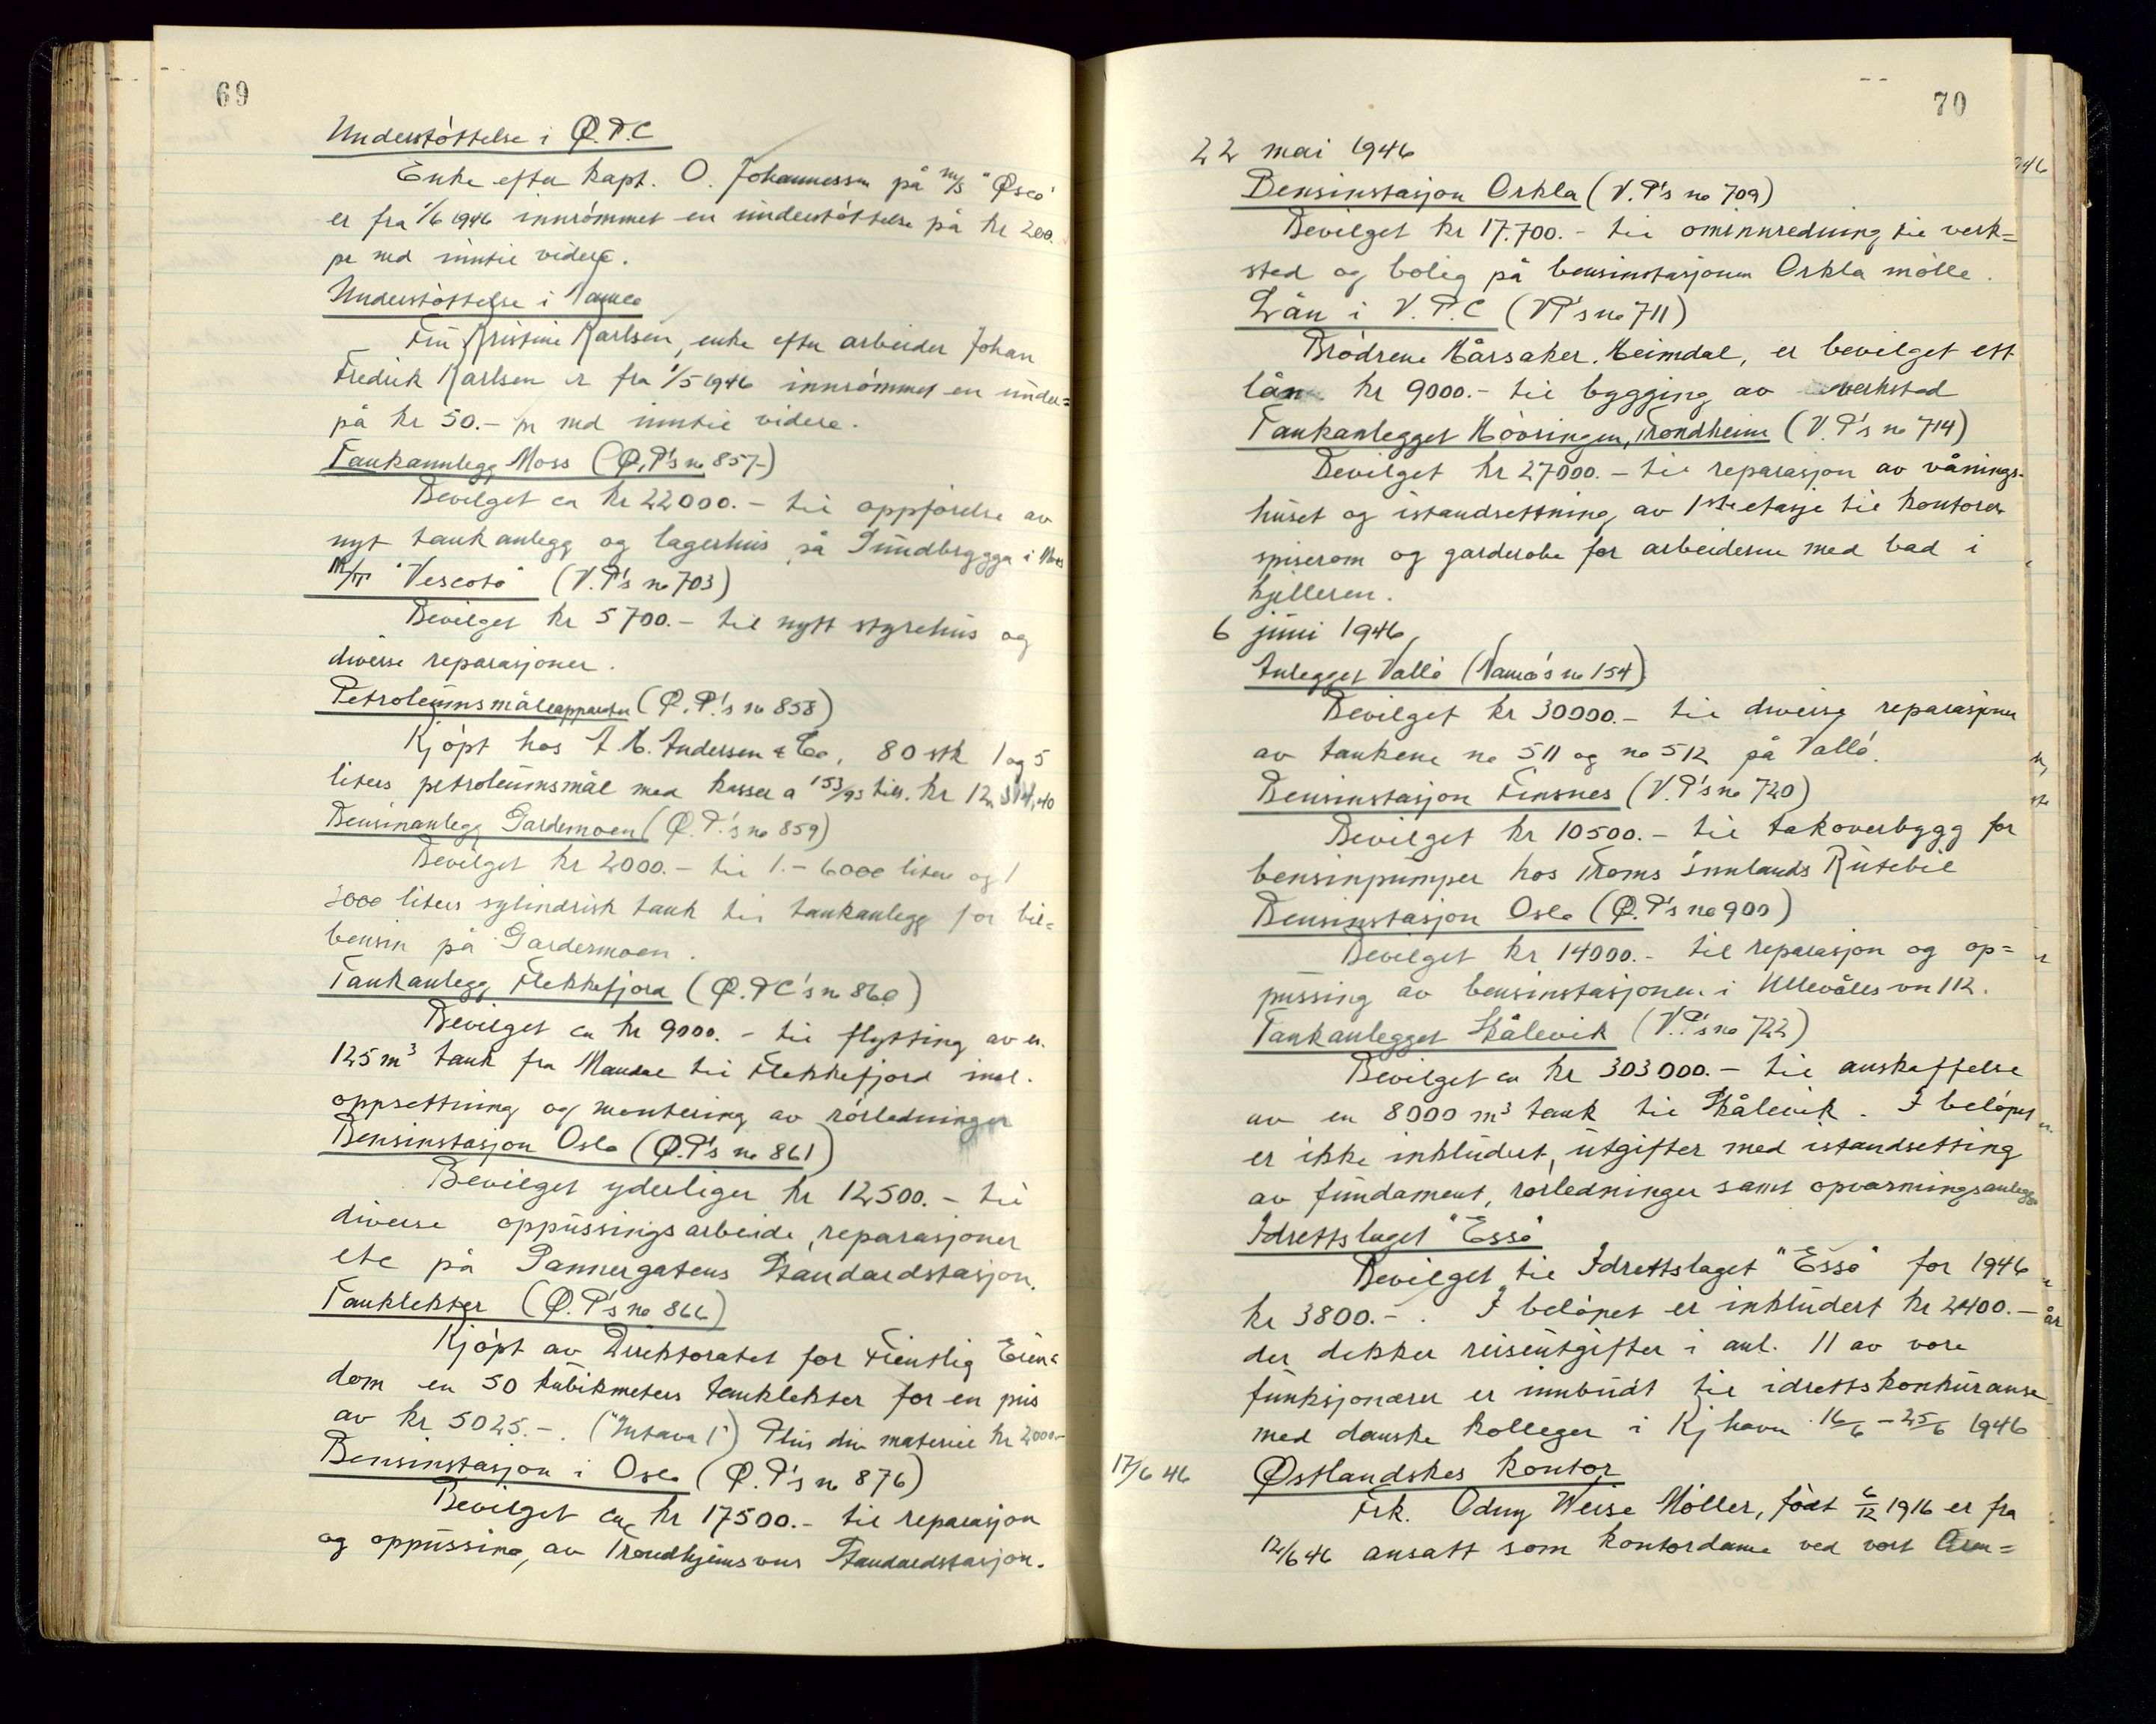 69
Understøttelse i Ø.P.C
Enke efter kapt. O. Johannessen på m/s "Øsco"
er fra 1/6 1946 innrømmet en understøttelse på kr 200.
pr md inntil videre.
Understøttelse i Vamco
Fru Kristine Karlsen, enke efter arbeider Johan
Fredrik Karlsen er fra 1/5 1946 innrømmet en under=
på kr 50.- pr md inntil videre.
Tankannlegg Moss (Ø.P's no 857)
Bevilget ca kr 22000.- til oppførelse av
nyt tankanlegg og lagerhus på Sundbrygga i Moss
M/T "Vescoto" (V.P's no 703)
Bevilget kr 5700.- til nytt styrehus og
diverse reparasjoner.
Petroleumsmåleapparater (Ø.P.'s no 858)
Kjøpt hos A.H. Andersen & Co, 80 stk 1 og 5
liters petroleumsmål med kasser a 153/93 till. kr 12 314,40
Bensinanlegg Gardemoen (Ø.P.'s no 859)
Bevilget kr 2000.- til 1.- 6000 liters og 1
3000 liters sylindrisk tank til tankanlegg for bil=
bensin på Gardermoen.
Tankanlegg Flekkefjord (Ø.PC's no 860)
Bevilget ca kr 9000.- til flytting av en
125 m³ tank fra Mandal til Flekkefjord incl.
oppsettning og montering av rørledninger
Bensinstasjon Oslo (Ø.P's no 861)
Bevilget yderliger kr 12500.- til
diverse oppussingsarbeide, reparasjoner
etc på Sannergatens Standardstasjon.
Tanklekter (Ø.P's no 866)
Kjøpt av Direktoratet for Fientlig Eien=
dom en 50 kubikmeters tanklekter for en pris
av kr 5025.-. ("Intava 1") Plus div materiel kr 2000.-
Bensinstasjon i Oslo (Ø.P's no 876)
Bevilget ca kr 17500.- til reparasjon
og oppussing av Trondhjemsvns Standardstasjon.
70
22 mai 1946
Bensinstasjon Orkla (V.P's no 709)
Bevilget kr 17.700.- til ominnredning til verk=
sted og bolig på bensinstasjonen Orkla mølle.
Lån i V.P.C (VP's no 711)
Brødrene Hårsaker, Heimdal, er bevilget ett
lån kr 9000.- til bygging av verksted
Tankanlegget Høvringen, Trondheim (V.P's no 714)
Bevilget kr 27000.- til reparasjon av vånings-
huset og istandsettning av 1ste etasje til kontorer
spiserom og garderobe for arbeiderne med bad i
kjelleren.
6 juni 1946,
Anlegget Vallø (Vamco's no 154)
Bevilget kr 30000.- til diverse reparasjoner
av tankene no 511 og no 512 på Vallø.
Bensinstasjon Finsnes (V.P's no 720)
Bevilget kr 10500.- til takoverbygg for
bensinpumper hos Troms Innlands Rutebil
Bensinstasjon Oslo (Ø.P's no 900)
Bevilget kr 14000.- til reparasjon og op=
pussing av bensinstasjonen i Ullevåls vn 112.
Tankanlegget Skålevik (V.P's no 722)
Bevilget ca kr 303000.- til anskaffelse
av en 8000 m³ tank til Skålevik. I beløpet
er ikke inkludert, utgifter med istandsetting
av fundament, rørledninger samt opvarmingsanlegg
Idrettslaget "Esso"
Bevilget til Idrettslaget "Esso" for 1946
kr 3800.-. I beløpet er inkludert kr 2400.-
der dekker reiseutgifter i anl. 11 av vore
funksjonærer er innbudt til idrettskonkuranse
med danske kolleger i Kjhavn 16/6 - 25/6 1946
17/6 46 Østlandskes kontor
Frk. Odny Weise Møller, født 6/12 1916 er fra
12/6 46 ansatt som kontordame ved vort